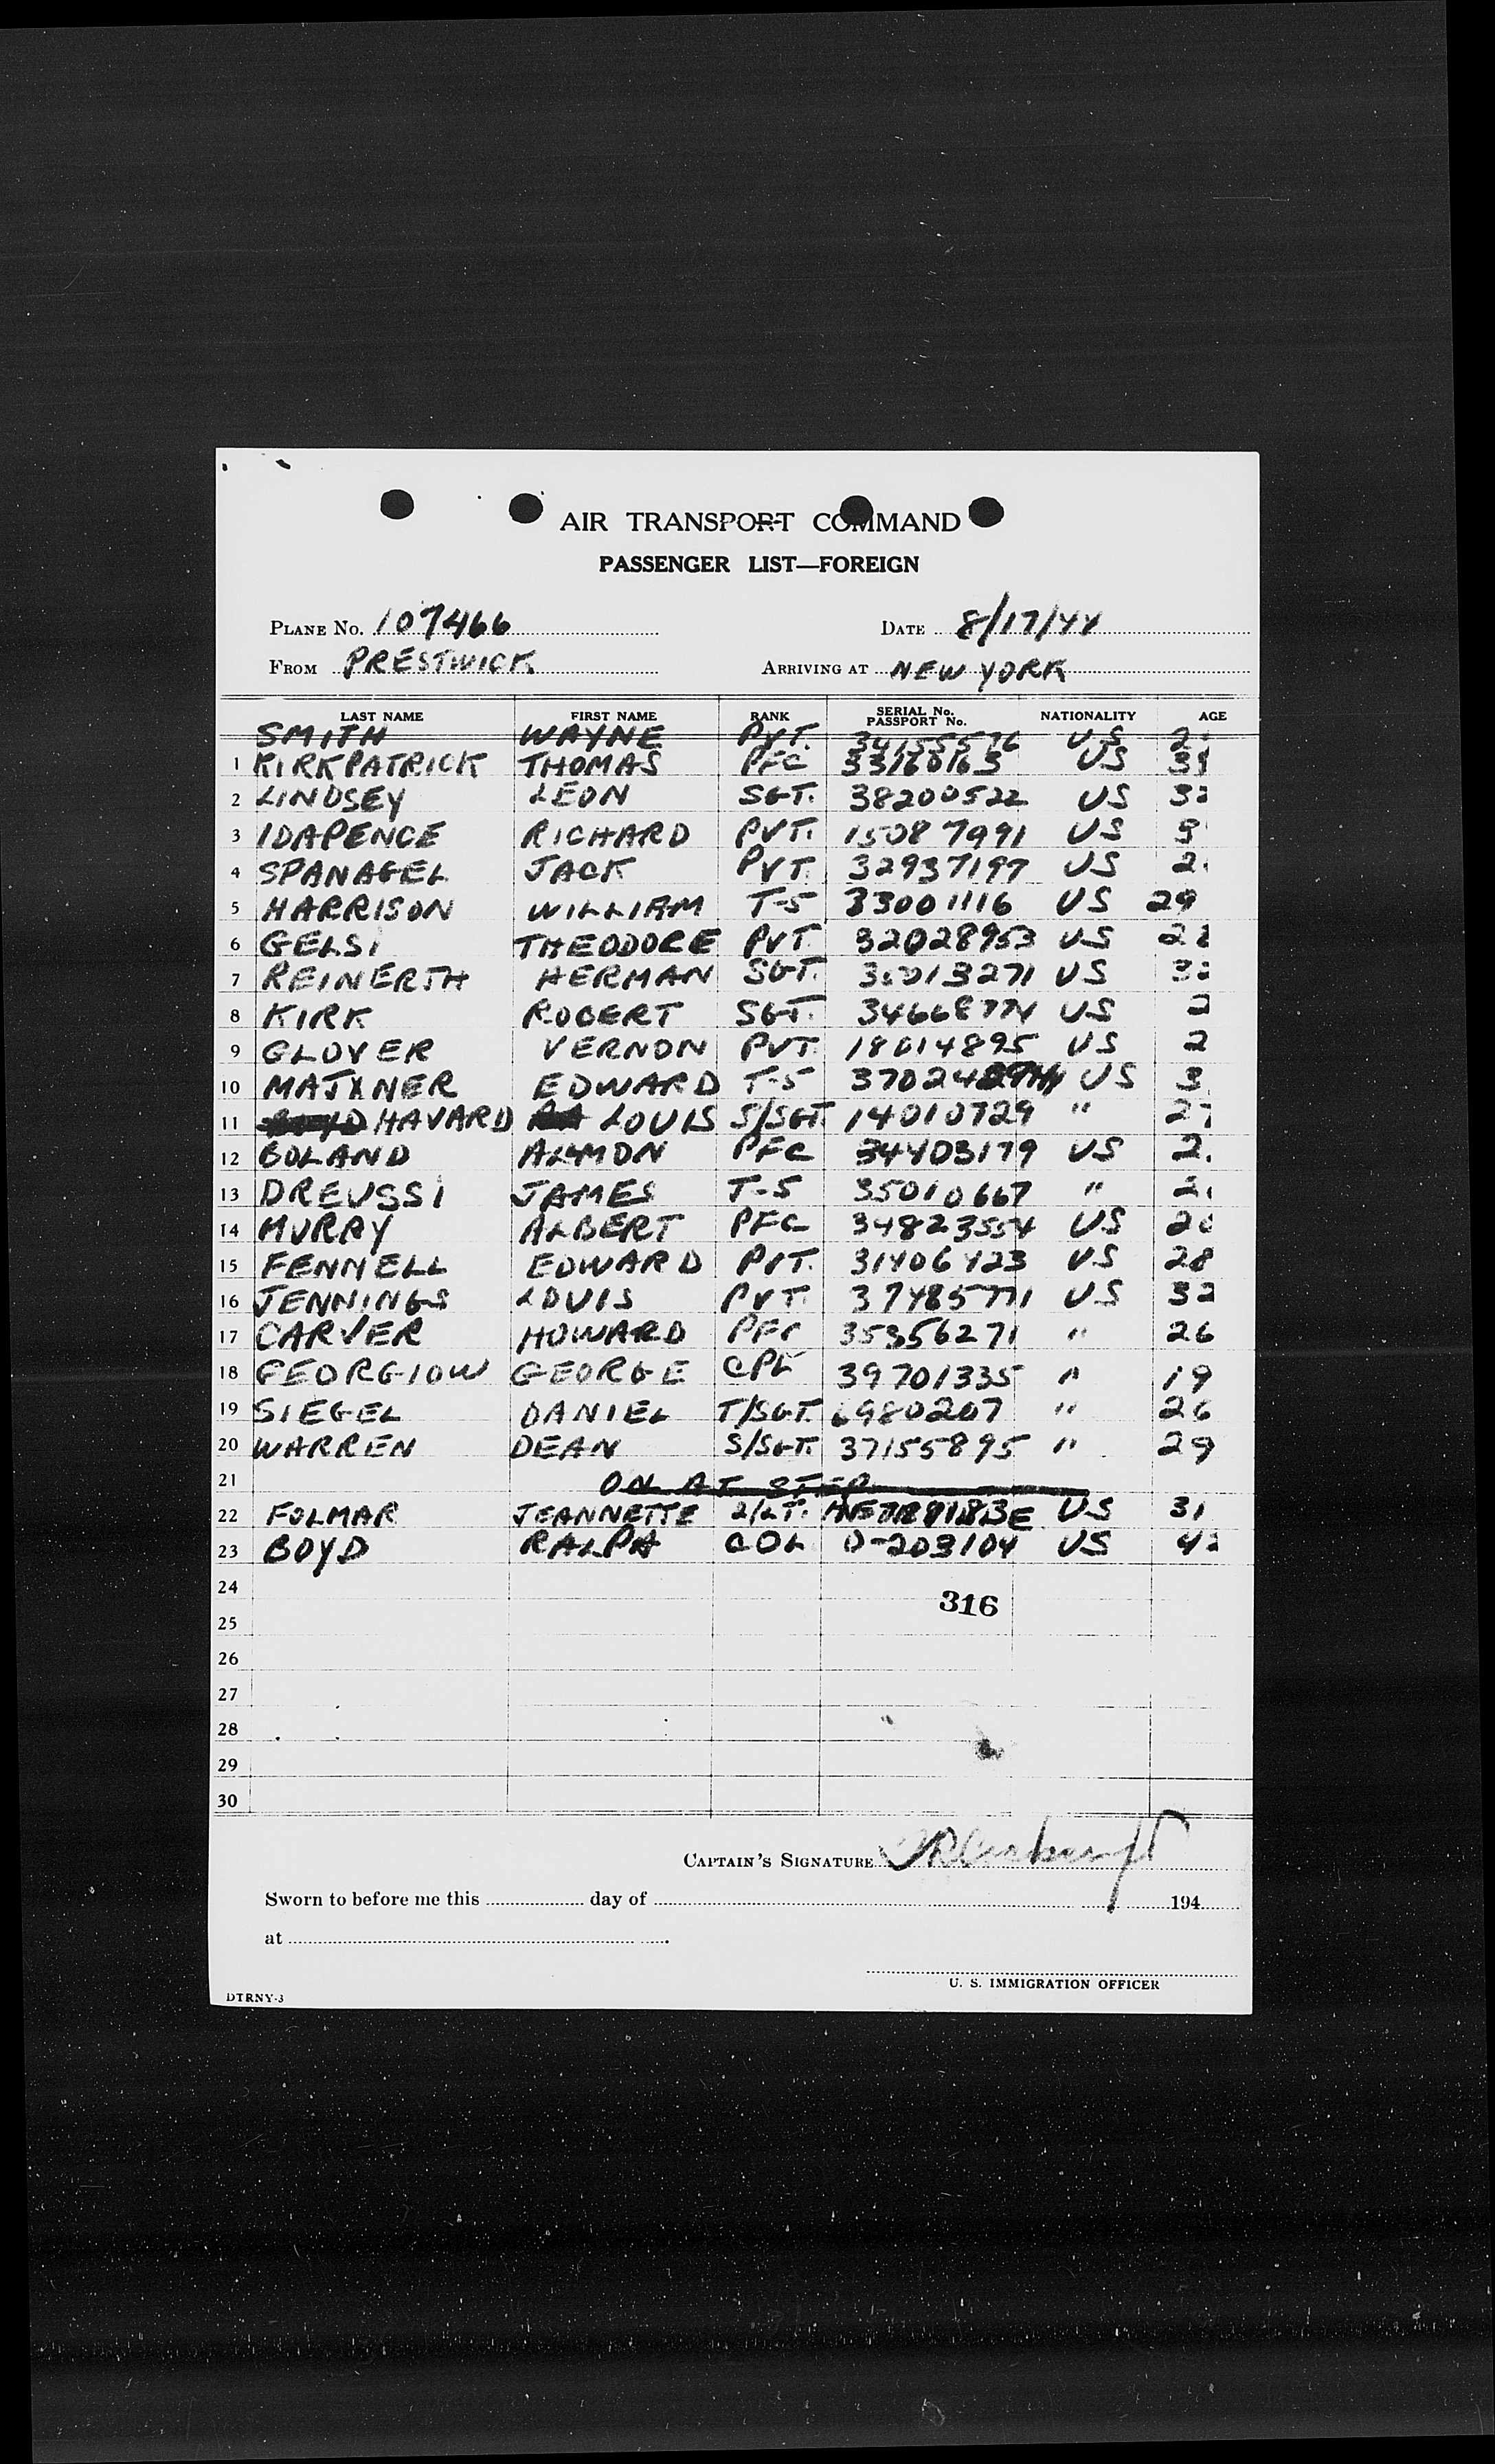 AIR TRANSPORT COMMAND
PASSENGER LIST—FOREIGN
PLANE No. 107466 DATE 8/17/44
FROM PRESTWICK ARRIVING AT NEW YORK
LAST NAME FIRST NAME RANK SERIAL No. PASSPORT No. NATIONALITY AGE
SMITH WAYNE PVT. 34155576 US
1 KIRKPATRICK THOMAS PFC 33160163 US
2 LINDSEY LEON SGT. 38200522 US
3 IDAPENCE RICHARD PVT. 15087991 US
4 SPANAGEL JACK PVT. 32937197 US
5 HARRISON WILLIAM T-5 33001116 US 29
6 GELSI THEODORE PVT. 32028953 US
7 REINERTH HERMAN SGT. 35013271 US
8 KIRK ROBERT SGT. 34668774 US
9 GLOVER VERNON PVT. 18014895 US
10 EDWARD T-5 US
11 HAVARD LOUIS S/SGT. 14010729 " 27
12 BOLAND ALMON PFC 34403179 US
13 DREUSSI JAMES T-5 35010667 "
14 MURRY ALBERT PFC 34823554 US 20
15 FENNELL EDWARD PVT. 31406423 US 28
16 JENNINGS LOUIS PVT. 37485771 US 32
17 CARVER HOWARD PFC 35356271 " 26
18 GEORGIOW GEORGE CPL 39701335 " 19
19 SIEGEL DANIEL T/SGT. 6980207 " 26
20 WARREN DEAN S/SGT. 37155895 " 29
21 ON AT
22 FOLMAR JEANNETTE 2/LT. US 31
23 BOYD RALPH COL. O-203104 US
24
316
25
26
27
28
29
30
CAPTAIN'S SIGNATURE
Sworn to before me this day of 194
at
U. S. IMMIGRATION OFFICER
DTRNY-3